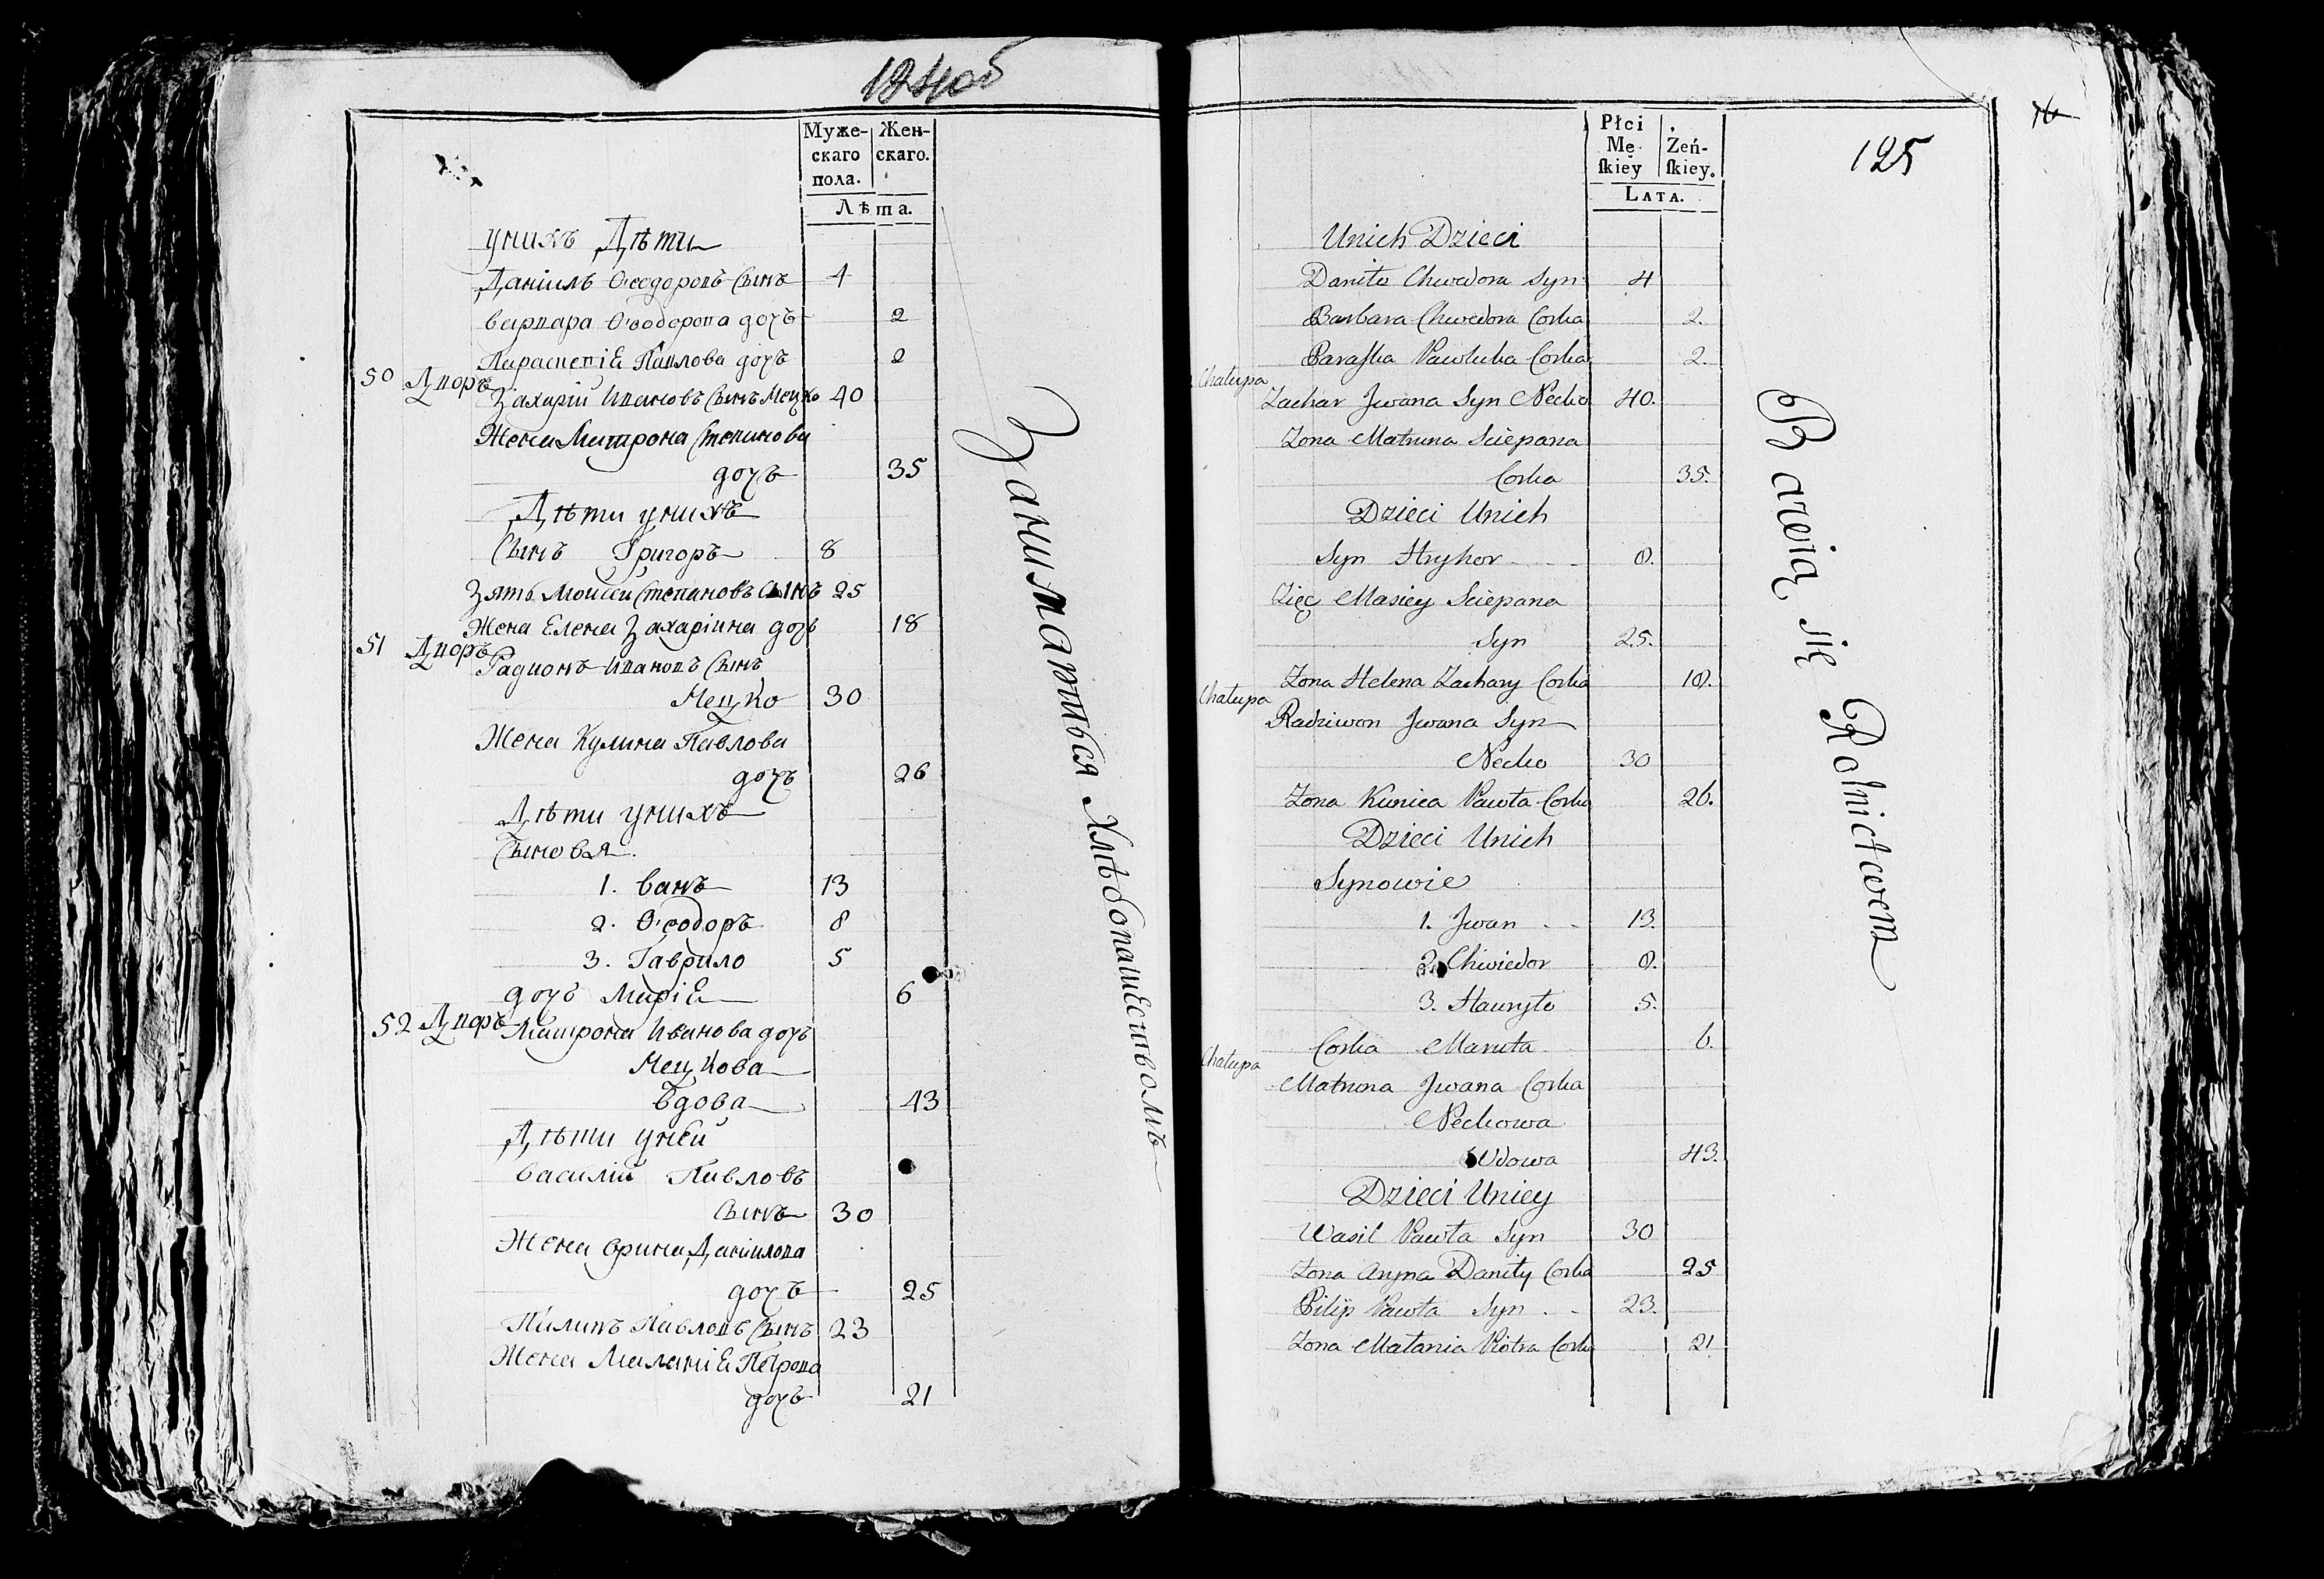 124об
Муже-
скаго
пола.
Жен-
скаго.
Лѣта.
унихъ Дѣти
Даніилъ Ѳеодоровъ Сынъ 4
варвара Ѳеодорова дочь 2
Параскевія Павлова дочь 2
50 Дворъ
Захарій Ивановъ Сынъ Нецко 40
Жена Матрона Степанова
дочь 35
Дѣти унихъ
Сынъ Григоръ 8
Зять Моисей Степановъ Сынъ 25
Жена Елена Захаріина дочь 18
51 Дворъ
Радионъ Ивановъ Сынъ
Нецко 30
Жена Кулина Павлова
дочь 26
Дѣти унихъ
Сыновья.
1. Иванъ 13
2. Ѳеодоръ 8
3. Гаврило 5
дочь Марія 6
52 Дворъ
Матрона Иванова дочь
Нецкова
Вдова 43
Дѣти уней
василій Павловъ
Сынъ 30
Жена Орина Даниилова
дочь 25
Пилипъ Павловъ Сынъ 23
Жена Маланія Петрова
дочь 21
Занимаються Хлѣбопашествомъ
16
125
Płci
Mę-
ſkiey
Żeń-
ſkiey.
Lata.
Unich Dzieci
Daniło Chwedora Syn 4
Barbara Chwedora Corka 2.
Paraſka Pawluka Corka 2.
Chałupa
Zachar Jwana Syn Necko 40.
Zona Matruna Sciepana
Corka 35.
Dzieci Unich
Syn Hryhor 8.
Zięc Masiey Sciepana
Syn 25.
Zona Helena Zachary Corka 18.
Chałupa
Radziwon Jwana Syn
Necko 30
Zona Kunica Pawła Corka 26.
Dzieci Unich
Synowie
1. Jwan 13.
2. Chwiedor 8.
3. Hauryło 5.
Corka Maruta 6.
Chałupa
Matruna Jwana Corka
Neckowa
Wdowa 43.
Dzieci Uniey
Wasil Pawła Syn 30
Zona Aryna Daniły Corka 25
Pilip Pawła Syn 23.
Zona Małania Piotra Corka 21
Bawią się Rolnictwem